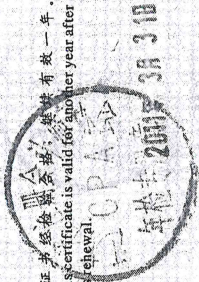 证书经检验合格，继续有效一年。
s certificate is valid for another year after
s renewal
CPA
2011年3月31日